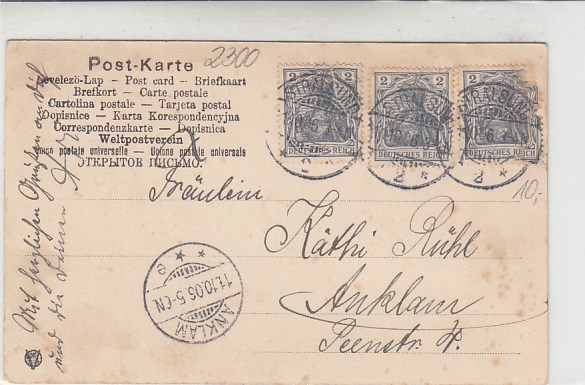 Post-Karte
2300
Levelező-Lap – Post card – Briefkaart
Brefkort – Carte postale
Cartolina postale – Tarjeta postal
Dopisnice – Karta Korespondencyjna
Correspondenzkarte – Dopisnica
Weltpostverein
Union postale universelle – Unione postale universale
ОТКРЫТОЕ ПИСЬМО
2 2
DEUTSCHES REICH
2 2
DEUTSCHES REICH
2 2
DEUTSCHES REICH
STRALSUND
STRALSUND
STRALSUND
10,
Fräulein
Käthi Rühl
Anklam
Peenstr. 4.
ANKLAM
11.10.06.5-6N
Mit herzlichen Grüßen an dich
und die Deinen